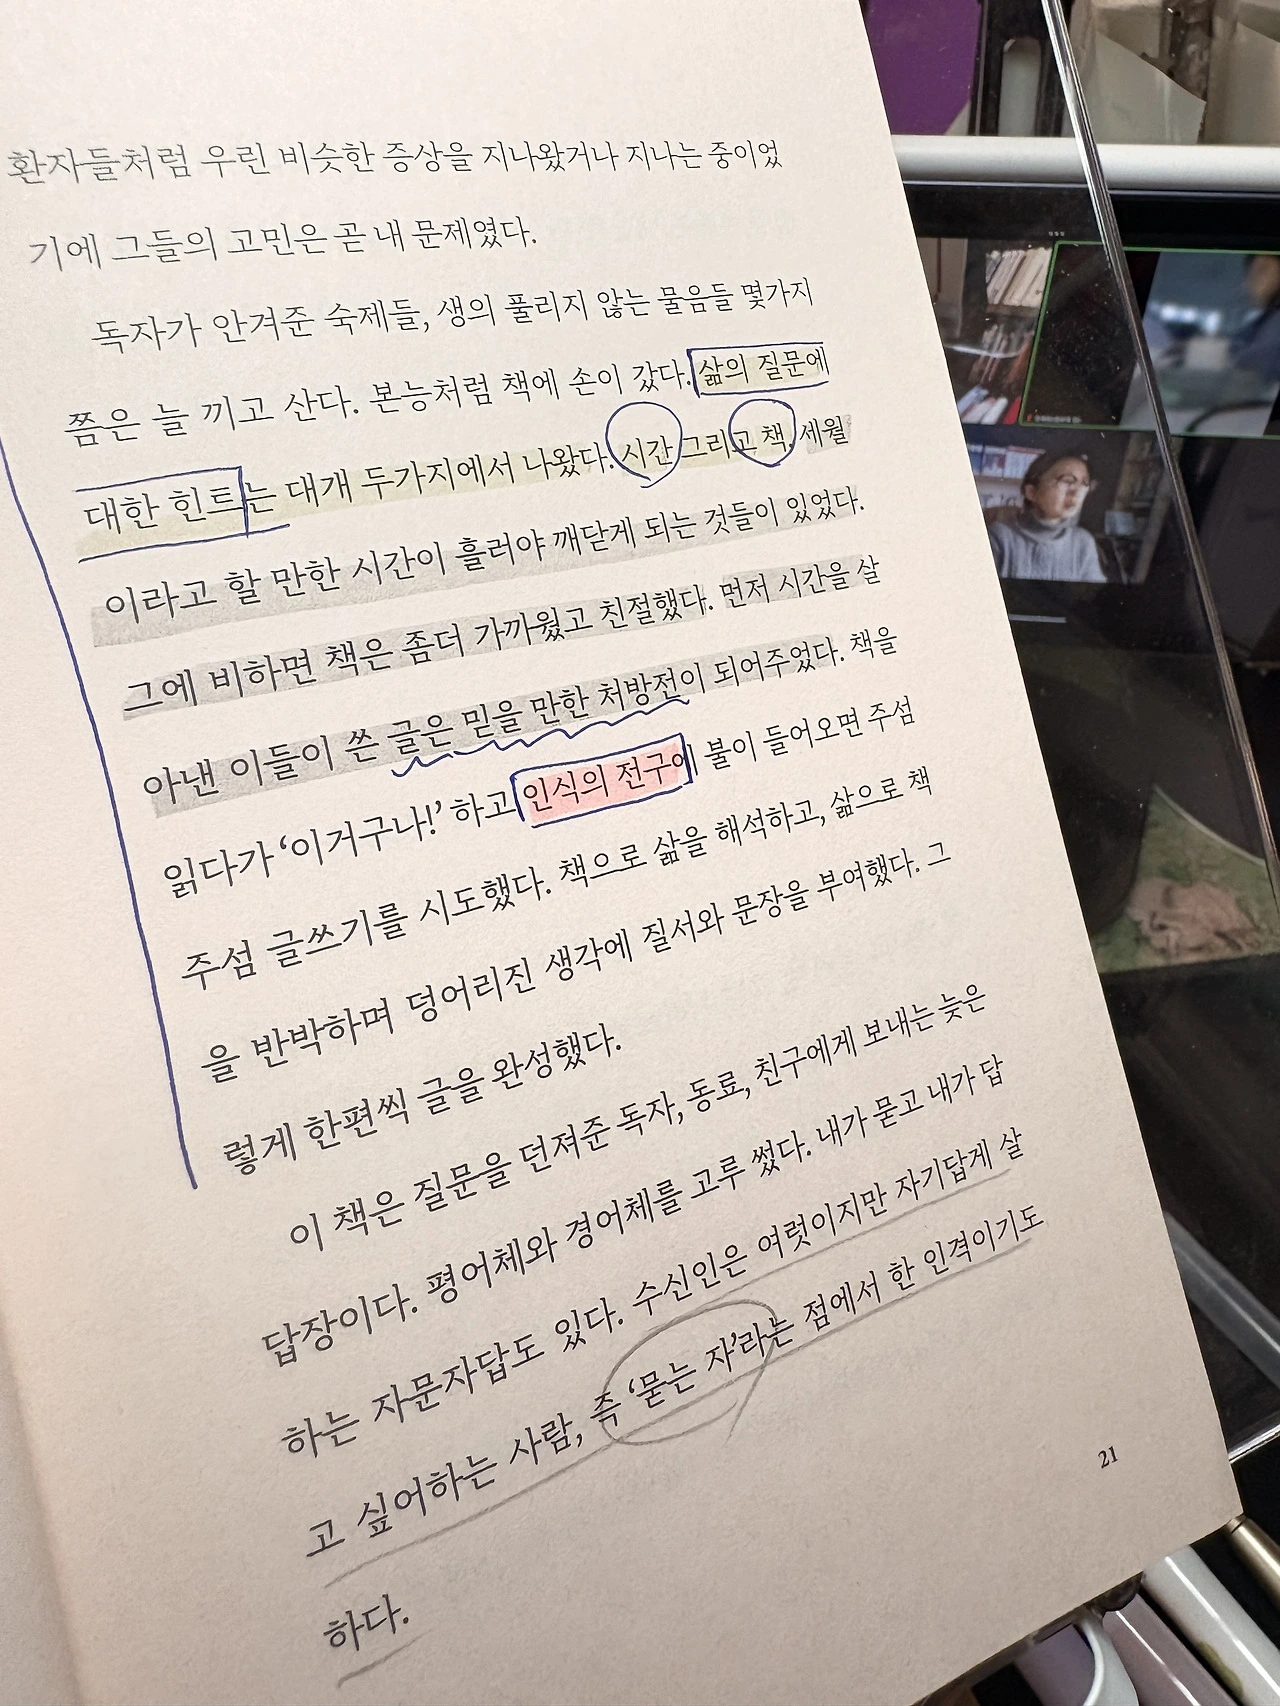 환자들처럼 우린 비슷한 증상을 지나왔거나 지나는 중이었
기에 그들의 고민은 곧 내 문제였다.
독자가 안겨준 숙제들, 생의 풀리지 않는 물음들 몇가지
쯤은 늘 끼고 산다. 본능처럼 책에 손이 갔다. 삶의 질문에
대한 힌트는 대개 두가지에서 나왔다. 시간 그리고 책. 세월
이라고 할 만한 시간이 흘러야 깨닫게 되는 것들이 있었다.
그에 비하면 책은 좀더 가까웠고 친절했다. 먼저 시간을 살
아낸 이들이 쓴 글은 믿을 만한 처방전이 되어주었다. 책을
읽다가 ‘이거구나!’ 하고 인식의 전구에 불이 들어오면 주섬
주섬 글쓰기를 시도했다. 책으로 삶을 해석하고, 삶으로 책
을 반박하며 덩어리진 생각에 질서와 문장을 부여했다. 그
렇게 한편씩 글을 완성했다.
이 책은 질문을 던져준 독자, 동료, 친구에게 보내는 늦은
답장이다. 평어체와 경어체를 고루 썼다. 내가 묻고 내가 답
하는 자문자답도 있다. 수신인은 여럿이지만 자기답게 살
고 싶어하는 사람, 즉 ‘묻는 자’라는 점에서 한 인격이기도
하다.
21